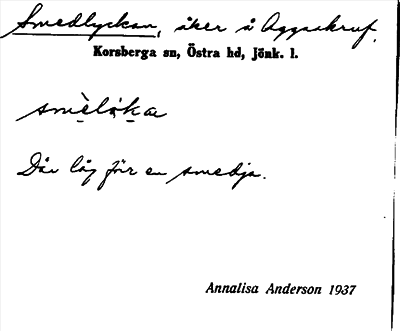 Smedlyckan, åker å Aggaskruf.
Korsberga sn, Östra hd, Jönk. l.
smèlơka
Där låg förr en smedja.
Annalisa Anderson 1937